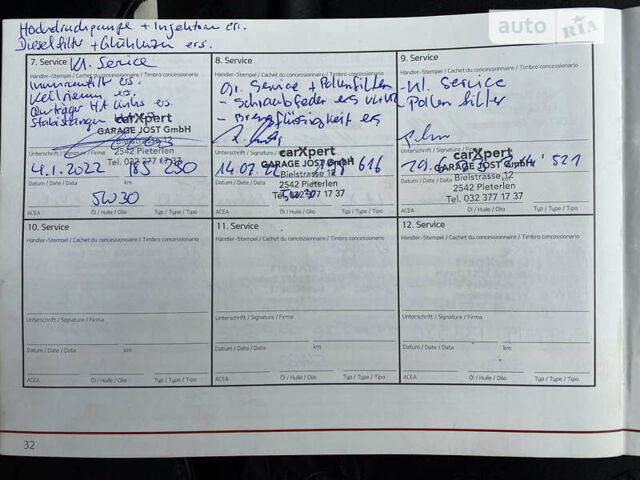 auto RIA
Hochdruckpumpe + Injektoren ers.
Dieselfilter + Glühkerzen ers.
7. Service Kl. Service
Händler-Stempel / Cachet du concessionnaire / Timbro concessionario
Innenraumfilter ers.
Keilriemen ers.
Querträger HA links ers.
Stabistangen
carXpert
GARAGE JOST GmbH
Bielstrasse 12
2542 Pieterlen
Tel. 032 377 17 37
Unterschrift / Signature / Firma
4.1.2022 185 230
Datum / Date / Data km
5W30
ACEA Öl / Huile / Olio Typ / Type / Tipo
8. Service
Händler-Stempel / Cachet du concessionnaire / Timbro concessionario
Gr. Service + Pollenfilter
- Schraubfeder ers
- Bremsflüssigkeit ers
carXpert
GARAGE JOST GmbH
Bielstrasse 12
2542 Pieterlen
Tel. 032 377 17 37
Unterschrift / Signature / Firma
14.07.22 616
Datum / Date / Data km
5W30
ACEA Öl / Huile / Olio Typ / Type / Tipo
9. Service
Händler-Stempel / Cachet du concessionnaire / Timbro concessionario
- Kl. Service
Pollenfilter
carXpert
GARAGE JOST GmbH
Bielstrasse 12
2542 Pieterlen
Tel. 032 377 17 37
Unterschrift / Signature / Firma
521
Datum / Date / Data
ACEA Öl / Huile / Olio Typ / Type / Tipo
10. Service
Händler-Stempel / Cachet du concessionnaire / Timbro concessionario
Unterschrift / Signature / Firma
Datum / Date / Data km
ACEA Öl / Huile / Olio Typ / Type / Tipo
11. Service
Händler-Stempel / Cachet du concessionnaire / Timbro concessionario
Unterschrift / Signature / Firma
Datum / Date / Data km
ACEA Öl / Huile / Olio Typ / Type / Tipo
12. Service
Händler-Stempel / Cachet du concessionnaire / Timbro concessionario
Unterschrift / Signature / Firma
Datum / Date / Data km
ACEA Öl / Huile / Olio Typ / Type / Tipo
32